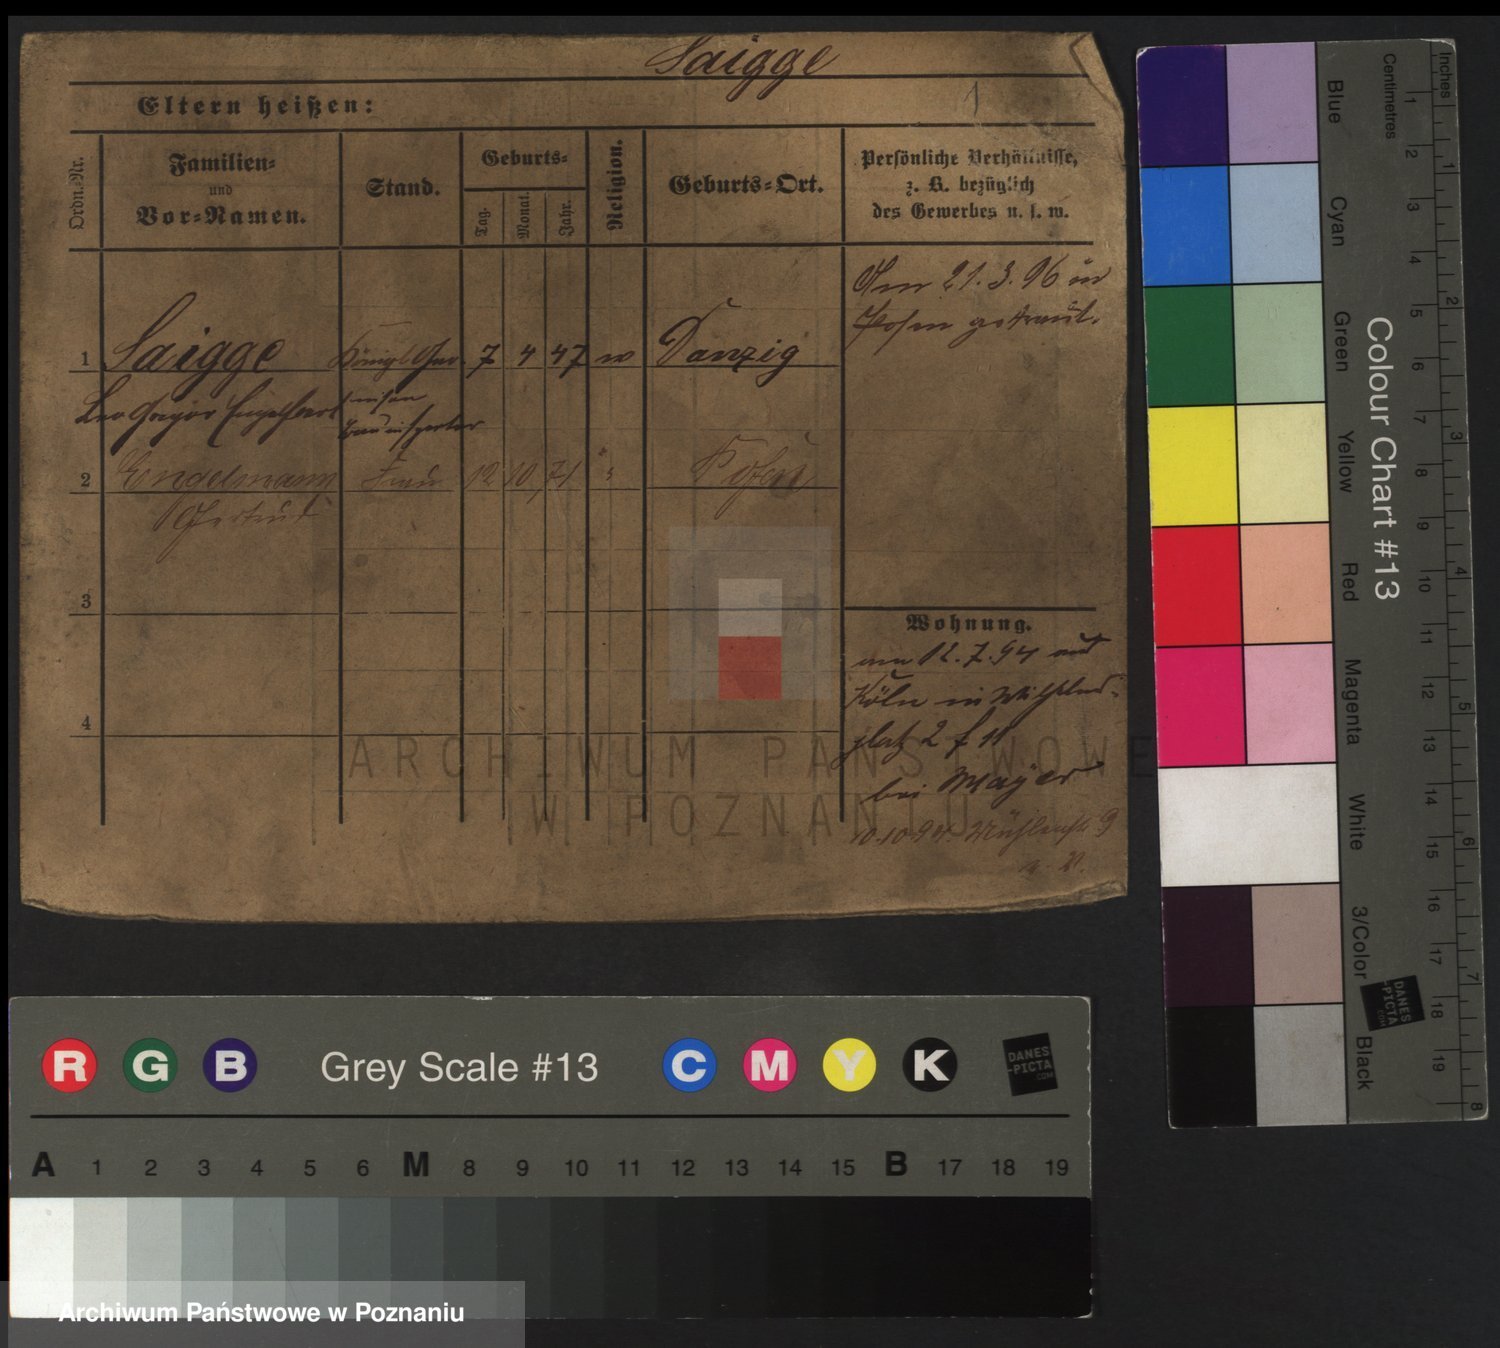 Saigge
1
Eltern heißen:
Ordn.-Nr.
Familien-
und
Vor-Namen.
Stand.
Geburts-
Tag.
Monat.
Jahr.
Religion.
Geburts-Ort.
Persönliche Verhältnisse,
z. B. bezüglich
des Gewerbes u. s. w.
Am 21.3.96 in
Posen getraut.
1 Saigge 7 4 47 Danzig
Leo Gregor Engelbert
Bauinspector
2 Engelmann Frau 12 10 71 Posen
Gertrud
3
4
Wohnung.
am 12.7.94 aus
Köln in Wilhelms-
platz 2
bei Mayer
10.10.94 Mühlenstr. 9
ARCHIWUM PAŃSTWOWE
W POZNANIU
Blue
Cyan
Green
Yellow
Red
Magenta
White
3/Color
Black
Colour Chart #13
Centimetres
1 2 3 4 5 6 7 8 9 10 11 12 13 14 15 16 17 18 19
Inches
1 2 3 4 5 6 7 8
DANES
-PICTA
.COM
R G B Grey Scale #13 C M Y K
DANES
-PICTA
.COM
A 1 2 3 4 5 6 M 8 9 10 11 12 13 14 15 B 17 18 19
Archiwum Państwowe w Poznaniu